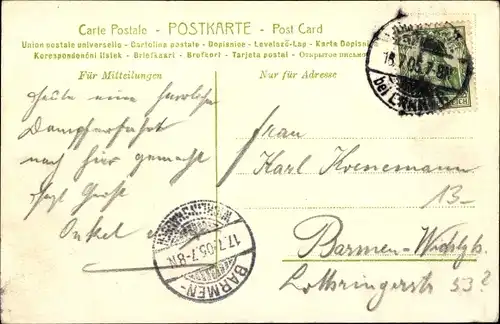 Carte Postale - POSTKARTE - Post Card
Union postale universelle - Cartolina postale - Dopisnice - Levelező-Lap - Karta
Korespondenční lístek - Briefkaart - Brefkort - Tarjeta postal - Открытое
Für Mitteilungen
Nur für Adresse
Heute eine herrliche
Dampferfahrt
nach hier gemacht
Gruß
Onkel
Frau
Karl Koenemann
13
Barmen-
Lothringerstr 53?
17.7.05.7-8N
BARMEN-
05.7-8N
bei
REICH